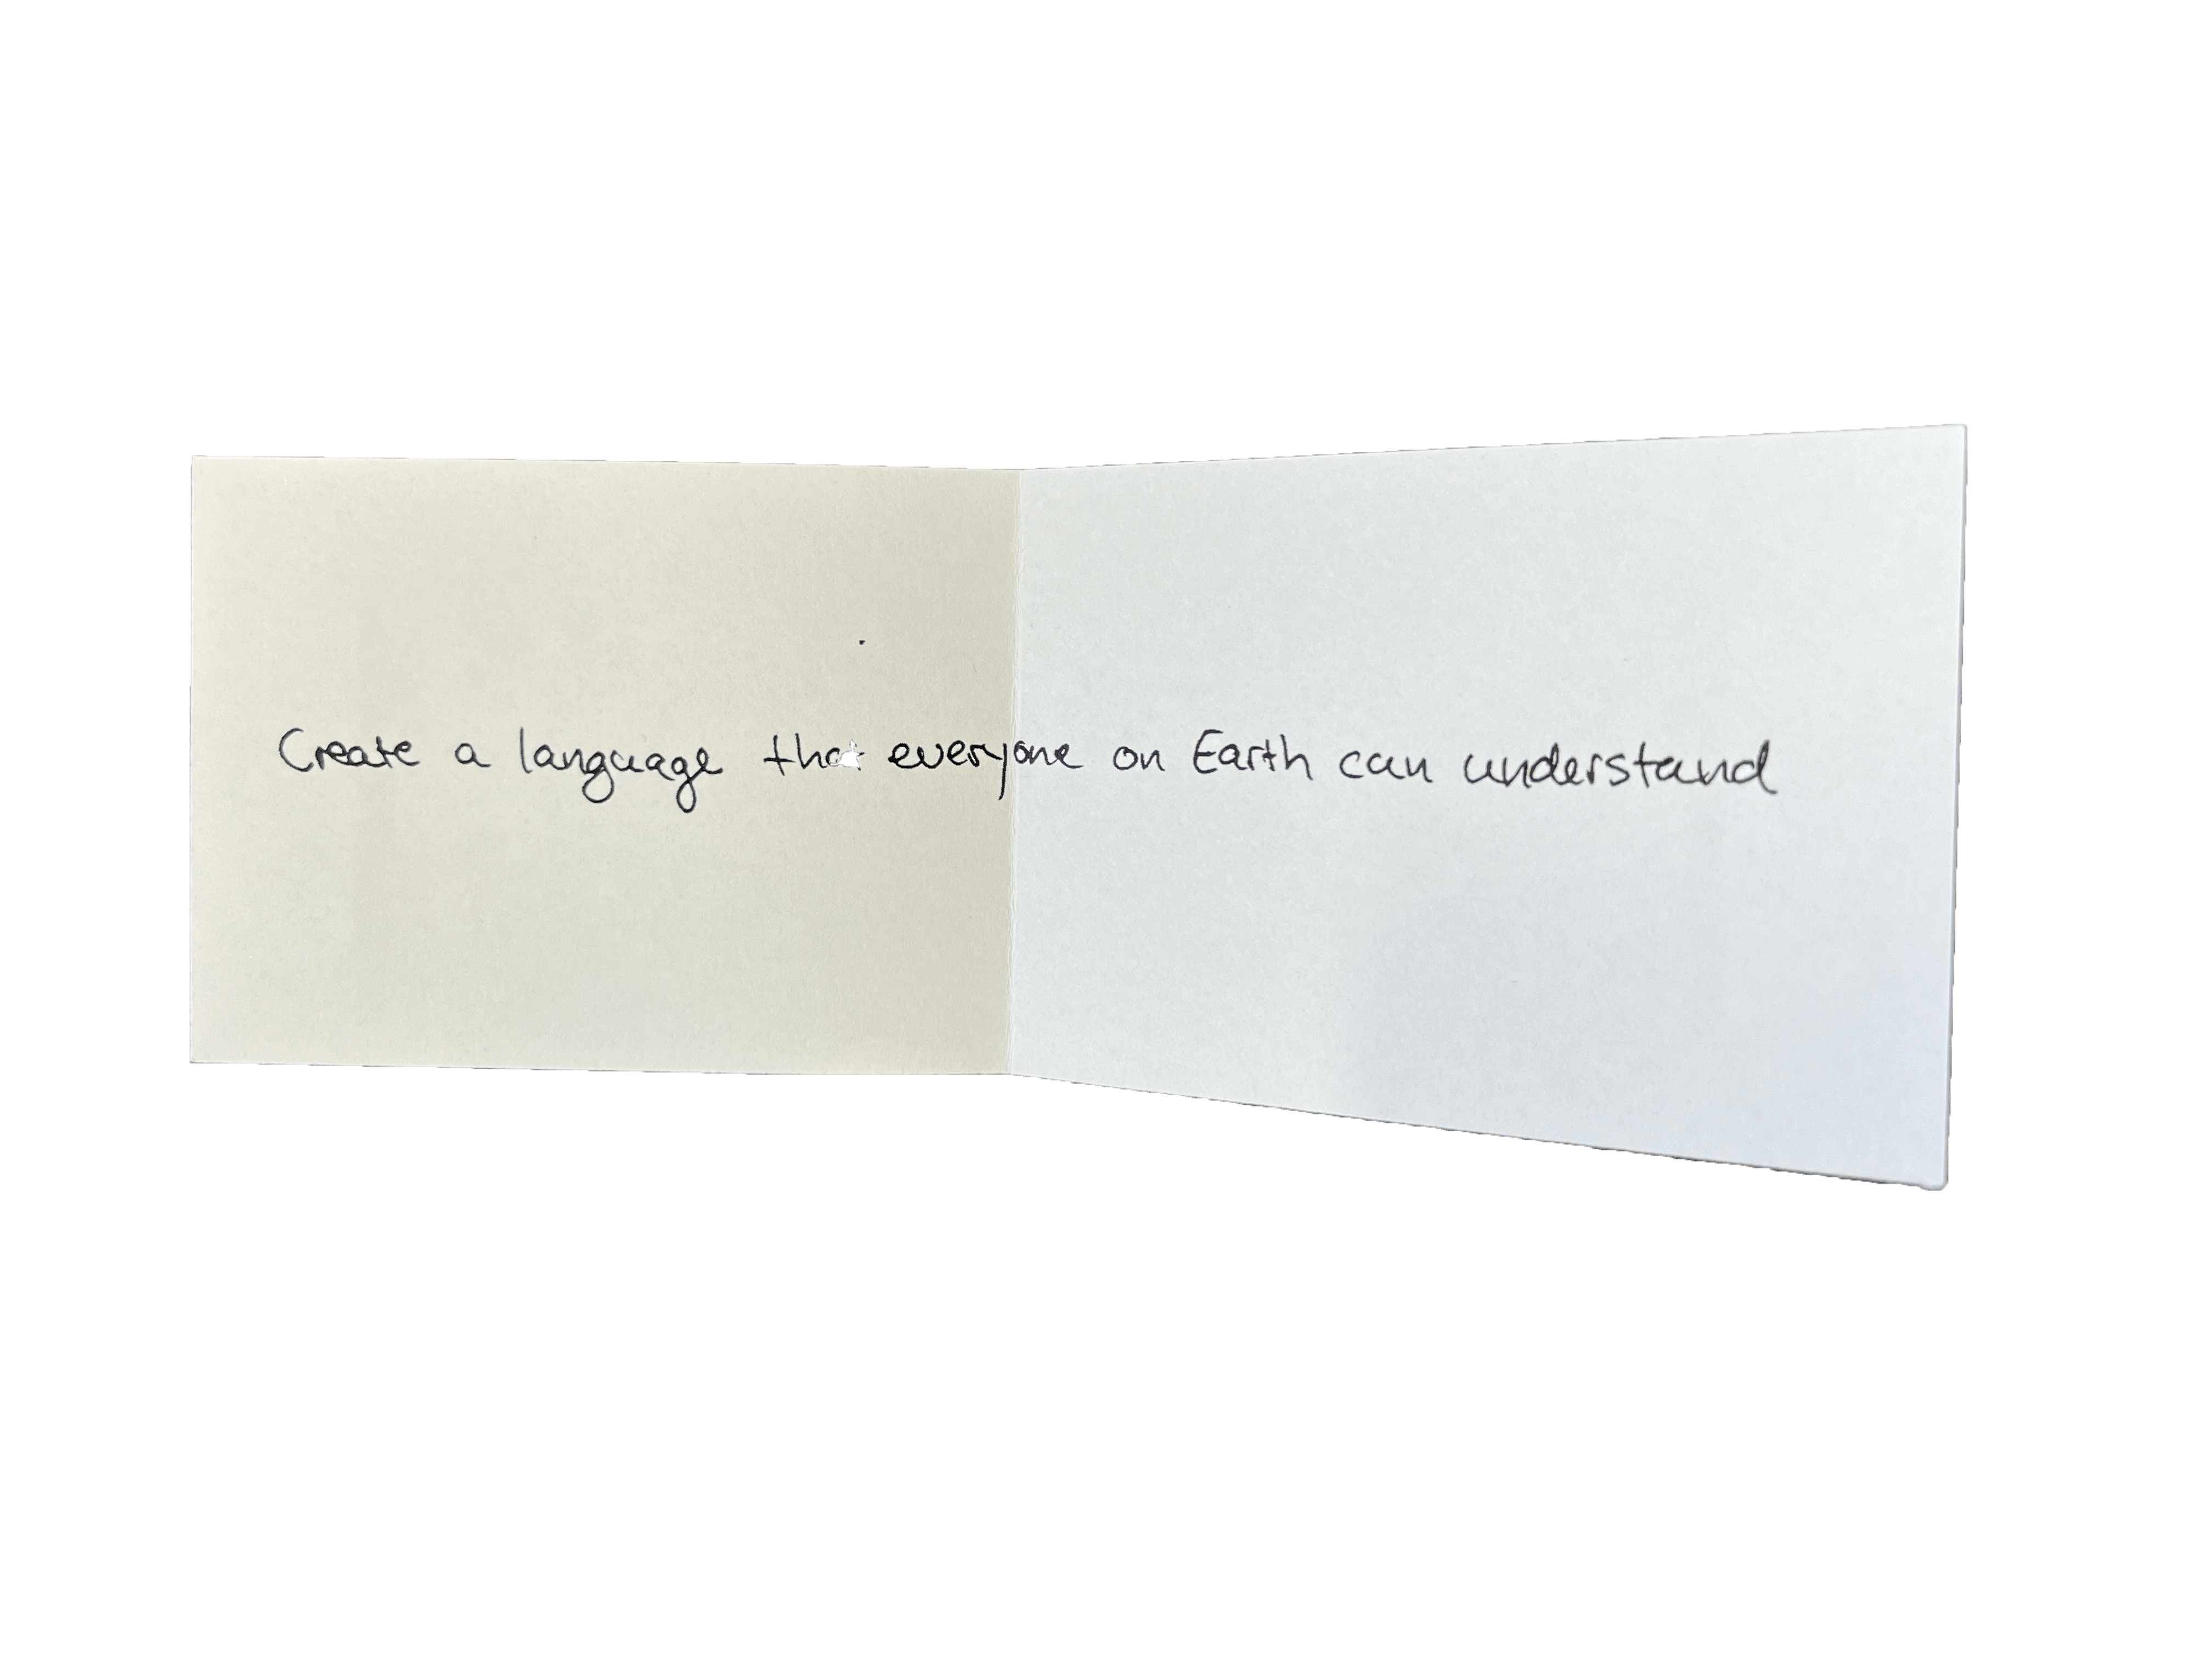 Create a language that everyone on Earth can understand